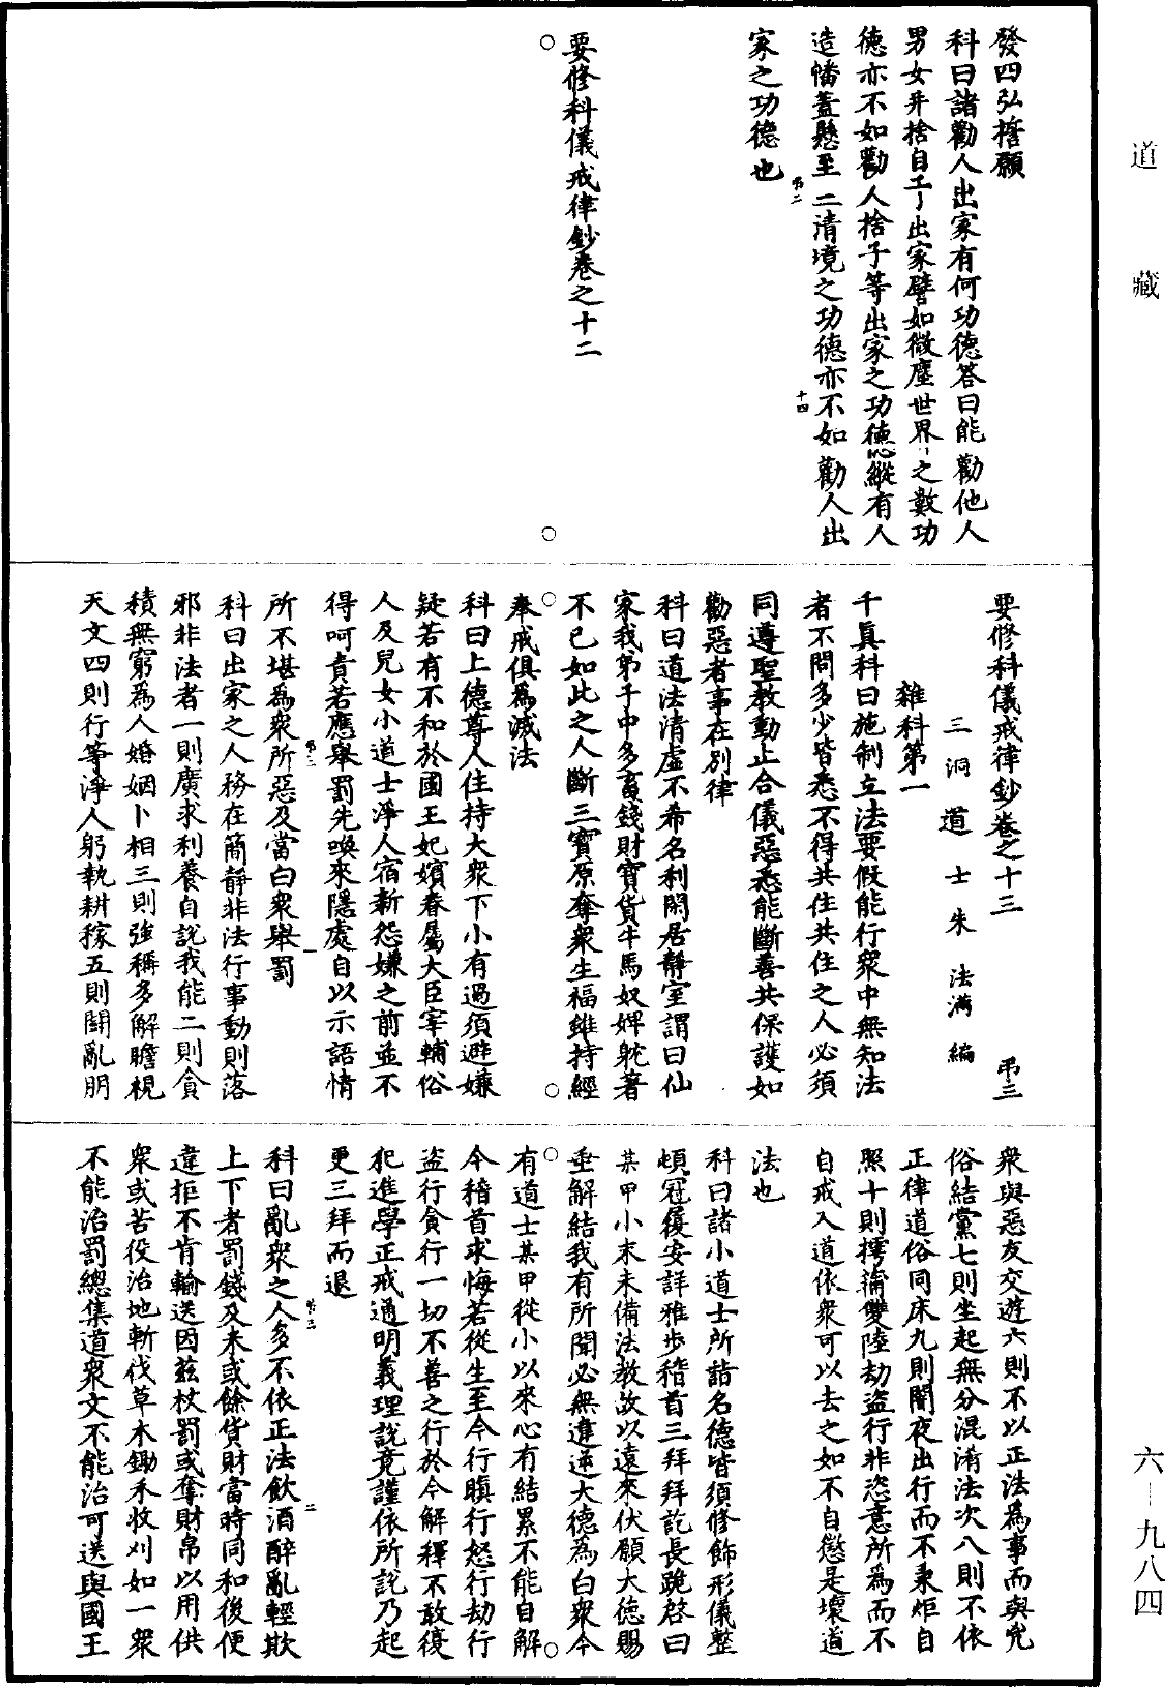 發四弘誓願
科曰諸勸人出家有何功德答曰能勸他人
男女并捨自 出家譬如微塵世界之數功
德亦不如勸人捨子等出家之功德縱有人
造幡蓋懸至二清境之功德亦不如勸人出
家之功德也
弔二
十四
要修科儀戒律鈔卷之十二
要修科儀戒律鈔卷之十三
弔三
三洞道士朱法滿編
雜科第一
千眞科曰施制立法要假能行衆中無知法
者不問多少皆悉不得共住共住之人必須
同遵聖教動止合儀惡悉能斷善共保護如
勸惡者事在別律
科曰道法清虛不希名利閑居靜室謂曰仙
家我弟子中多畜錢財寶貨牛馬奴婢躭著
不已如此之人斷三寶原奪衆生福雖持經
奉戒俱爲滅法
科曰上德尊人住持大衆下小有過須避嫌
疑若有不和於國王妃嬪眷屬大臣宰輔俗
人及兒女小道士淨人宿新怨嫌之前並不
得呵責若應舉罰先喚來隱處自以示語情
所不堪爲衆所惡及當白衆舉罰
弔三
一
科曰出家之人務在簡靜非法行事動則落
邪非法者一則廣求利養自說我能二則貪
積無窮爲人婚姻卜相三則強稱多解瞻視
天文四則行等淨人躬執耕稼五則鬭亂朋
衆與惡友交遊六則不以正法爲事而與兇
俗結黨七則坐起無分混淆法次八則不依
正律道俗同床九則闇夜出行而不秉炬自
照十則摴蒱雙陸劫盜行非恣意所爲而不
自戒入道依衆可以去之如不自懲是壞道
法也
科曰諸小道士所詣名德皆須修飾形儀整
頓冠履安詳雅步稽首三拜拜訖長跪啓曰
某甲小末未備法教故以遠來伏願大德賜
垂解結我有所聞必無違逆大德爲白衆今
有道士某甲從小以來心有結累不能自解
今稽首求悔若從生至今行瞋行怒行劫行
盜行貪行一切不善之行於今解釋不敢復
犯進學正戒通明義理說竟謹依所說乃起
更三拜而退
科曰亂衆之人多不依正法飲酒醉亂輕欺
弔三
二
上下者罰錢及米或餘貨財當時同和後便
違拒不肯輸送因茲杖罰或奪財帛以用供
衆或苦役治地斬伐草木鋤禾收刈如一衆
不能治罰總集道衆文不能治可送與國王
道藏
六－九八四